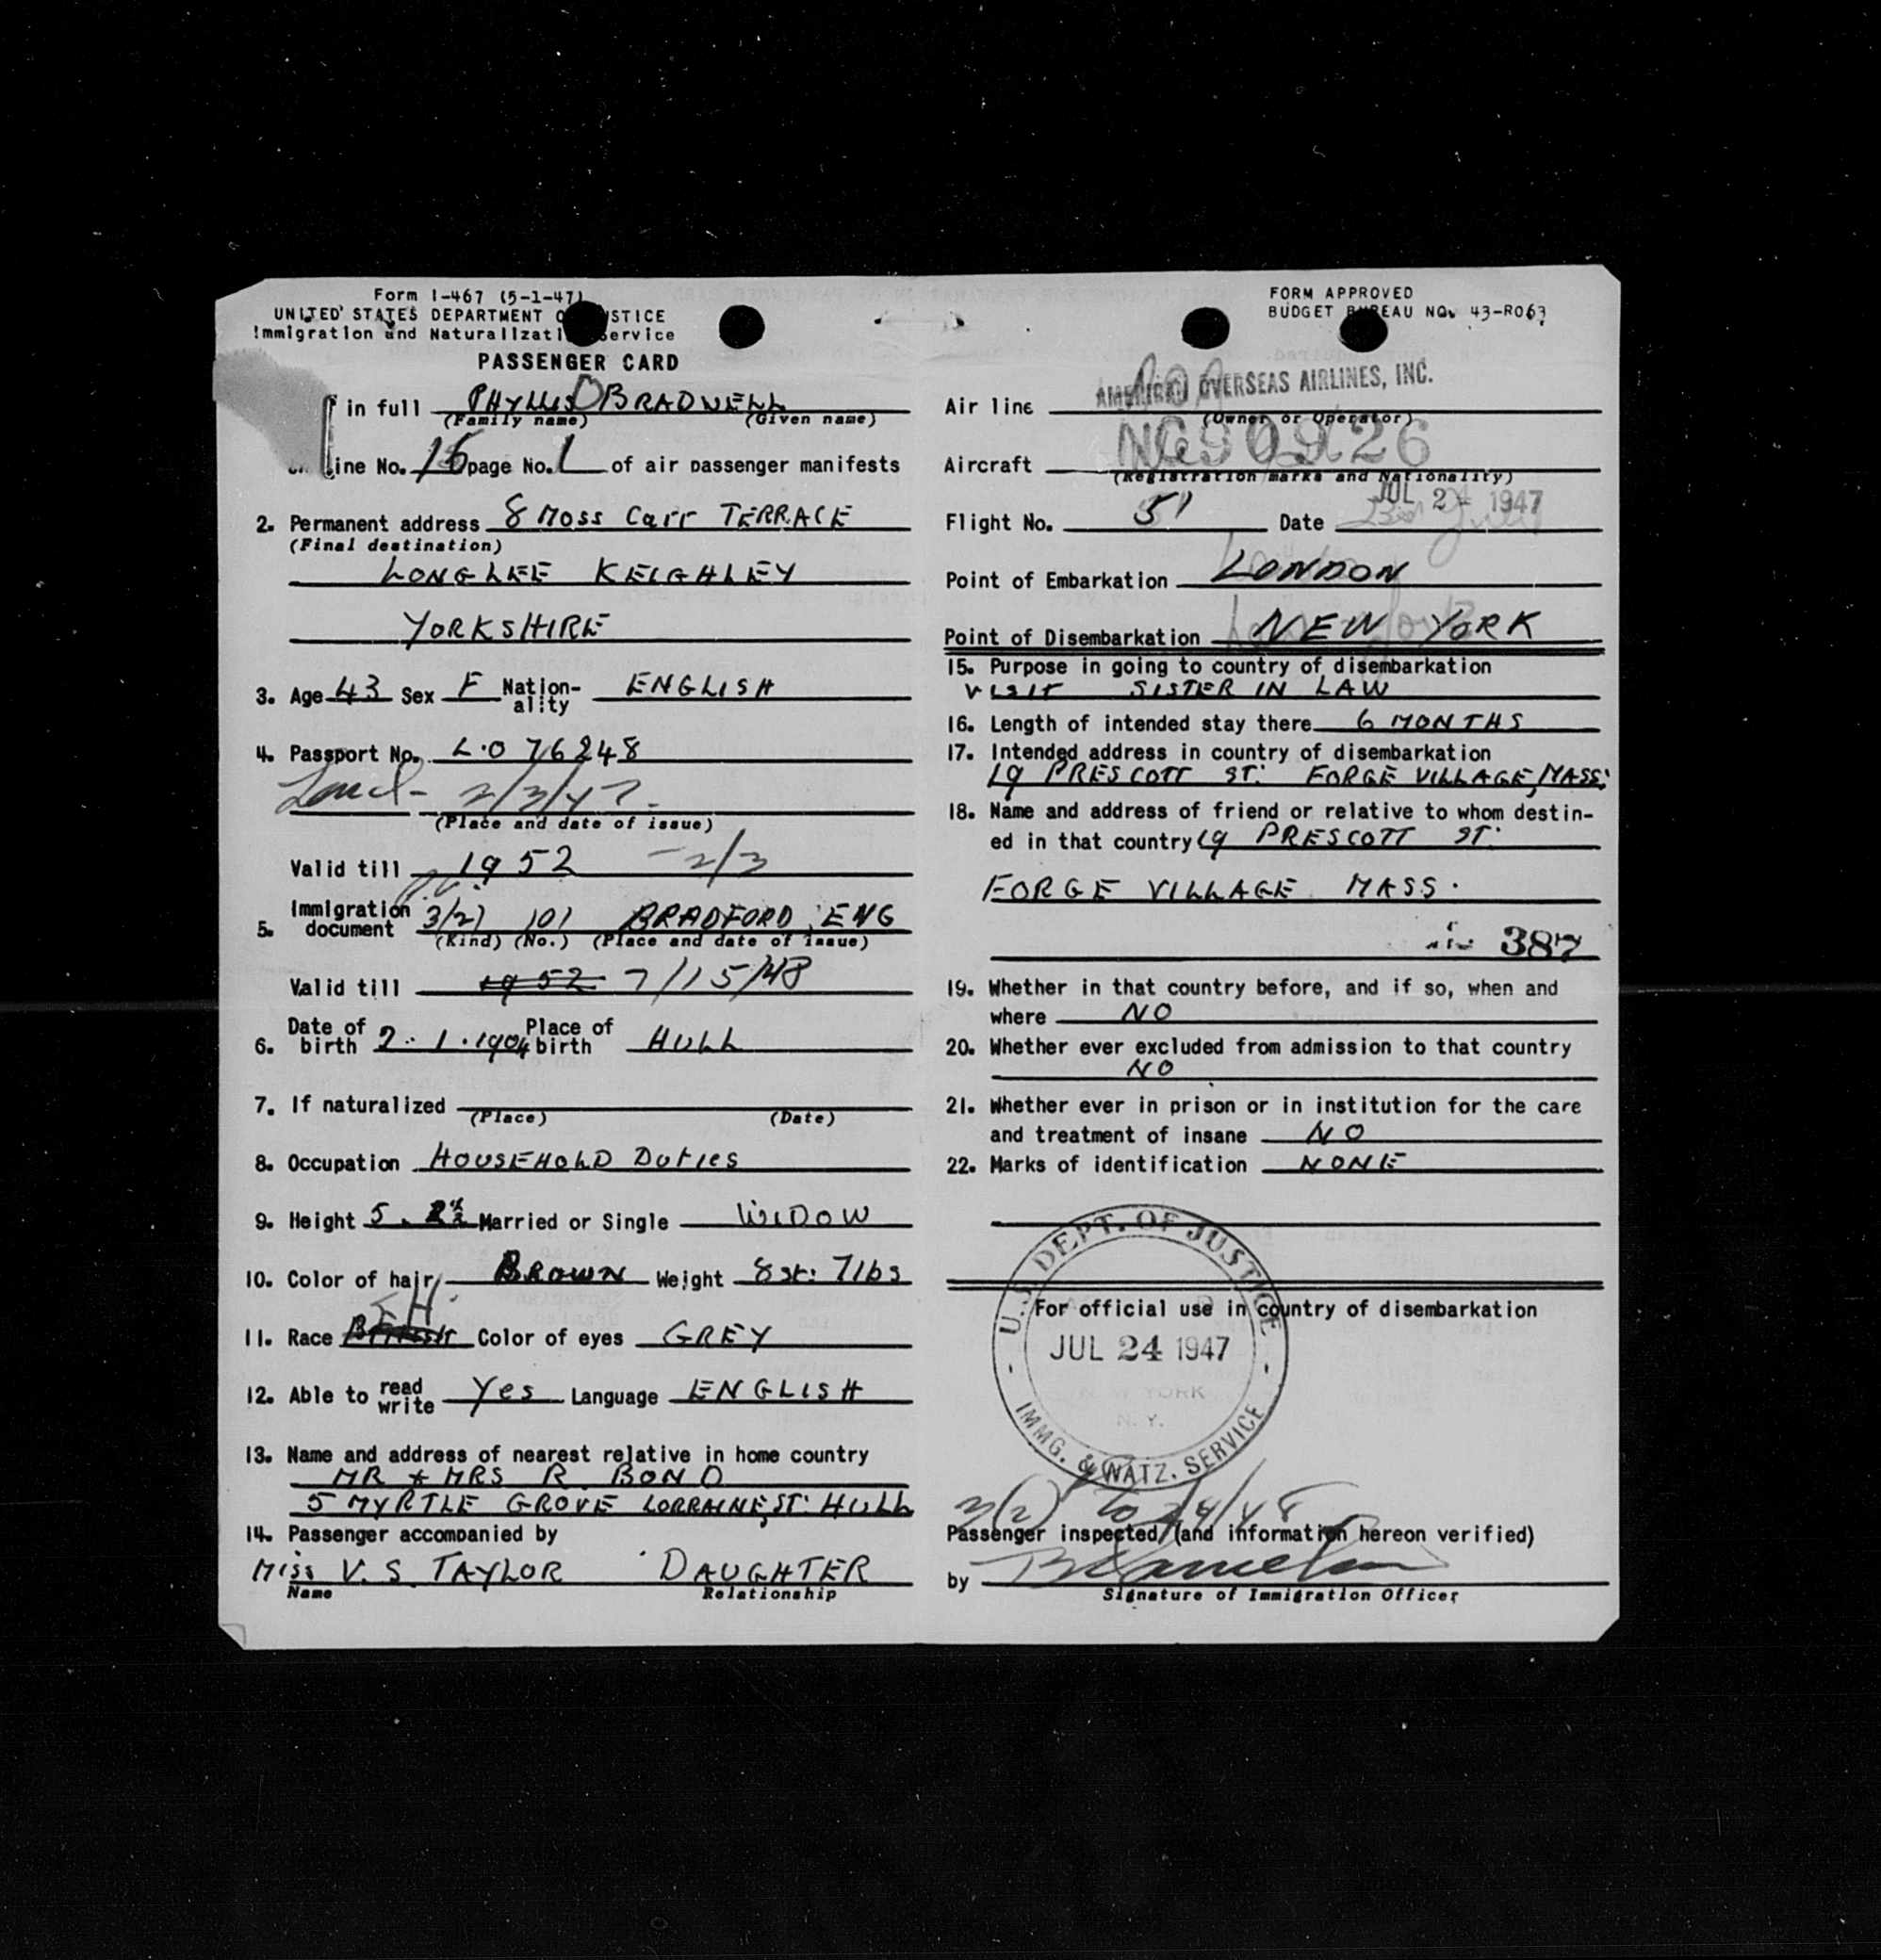 Form I-467 (5-1-47)
UNITED STATES DEPARTMENT O STICE
Immigration and Naturalizati Service
PASSENGER CARD
in full PHYLLIS BRADWELL
(Family name) (Given name)
ine No. 16 page No. 1 of air passenger manifests
2. Permanent address 8 Moss Carr TERRACE
(Final destination)
LONGLEE KEIGHLEY
YORKSHIRE
3. Age 43 Sex F Nation-ality ENGLISH
4. Passport No. L.0 76248
Lond- 2/3/47-
(Place and date of issue)
Valid till 1952 -2/3
5. Immigration document 3/2) 101 BRADFORD, ENG
(Kind) (No.) (Place and date of issue)
Valid till 1952 7/15/48
6. Date of birth 2. 1. 1904 Place of birth HULL
7. If naturalized
(Place) (Date)
8. Occupation HOUSEHOLD Duties
9. Height 5. 2½ Married or Single WIDOW
10. Color of hair BROWN Weight 8 st: 7 lbs
11. Race Color of eyes GREY
12. Able to read write Yes Language ENGLISH
13. Name and address of nearest relative in home country
MR & MRS R. BOND
5 MYRTLE GROVE LORRAINE ST: HULL
14. Passenger accompanied by
Miss V. S. TAYLOR DAUGHTER
Name Relationship
FORM APPROVED
BUDGET B REAU NO. 43-R063
Air line AMERICAN OVERSEAS AIRLINES, INC.
(Owner or Operator)
Aircraft
(Registration marks and Nationality)
Flight No. 51 Date JUL 24 1947
Point of Embarkation LONDON
Point of Disembarkation NEW YORK
15. Purpose in going to country of disembarkation
Visit SISTER IN LAW
16. Length of intended stay there 6 MONTHS
17. Intended address in country of disembarkation
19 PRESCOTT ST: FORGE VILLAGE, MASS:
18. Name and address of friend or relative to whom destin-
ed in that country 19 PRESCOTT ST.
FORGE VILLAGE MASS.
387
19. Whether in that country before, and if so, when and
where NO
20. Whether ever excluded from admission to that country
NO
21. Whether ever in prison or in institution for the care
and treatment of insane NO
22. Marks of identification NONE
For official use in country of disembarkation
U.S. DEPT. OF JUSTICE
JUL 24 1947
NEW YORK
N. Y.
IMMG. & NATZ. SERVICE
Passenger inspected (and information hereon verified)
by
Signature of Immigration Officer